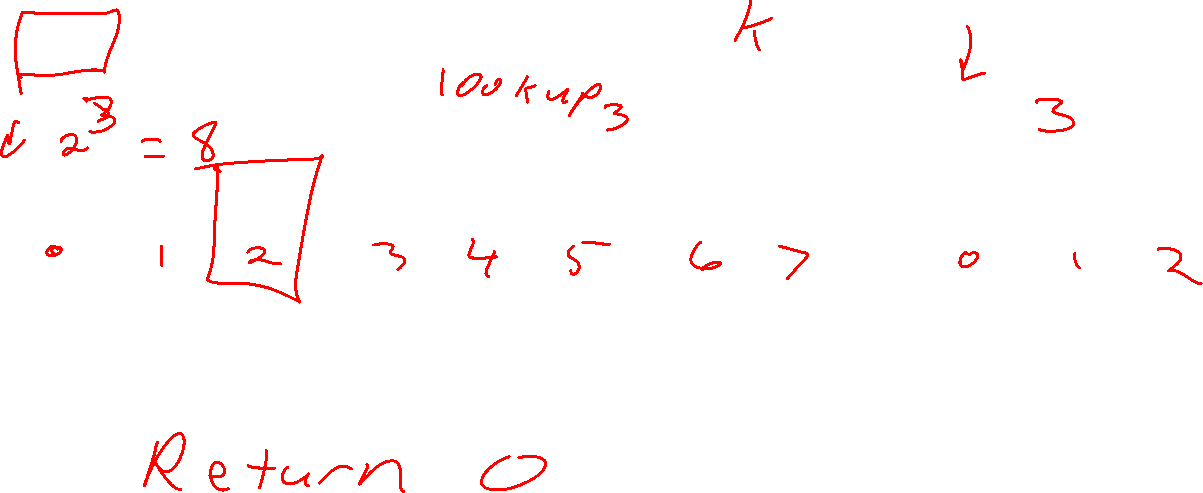 K
lookup3
3
2^3 = 8
0 1 2 3 4 5 6 7 0 1 2
Return 0